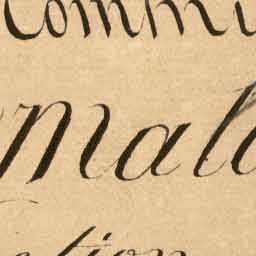 Commi
Mal
ction